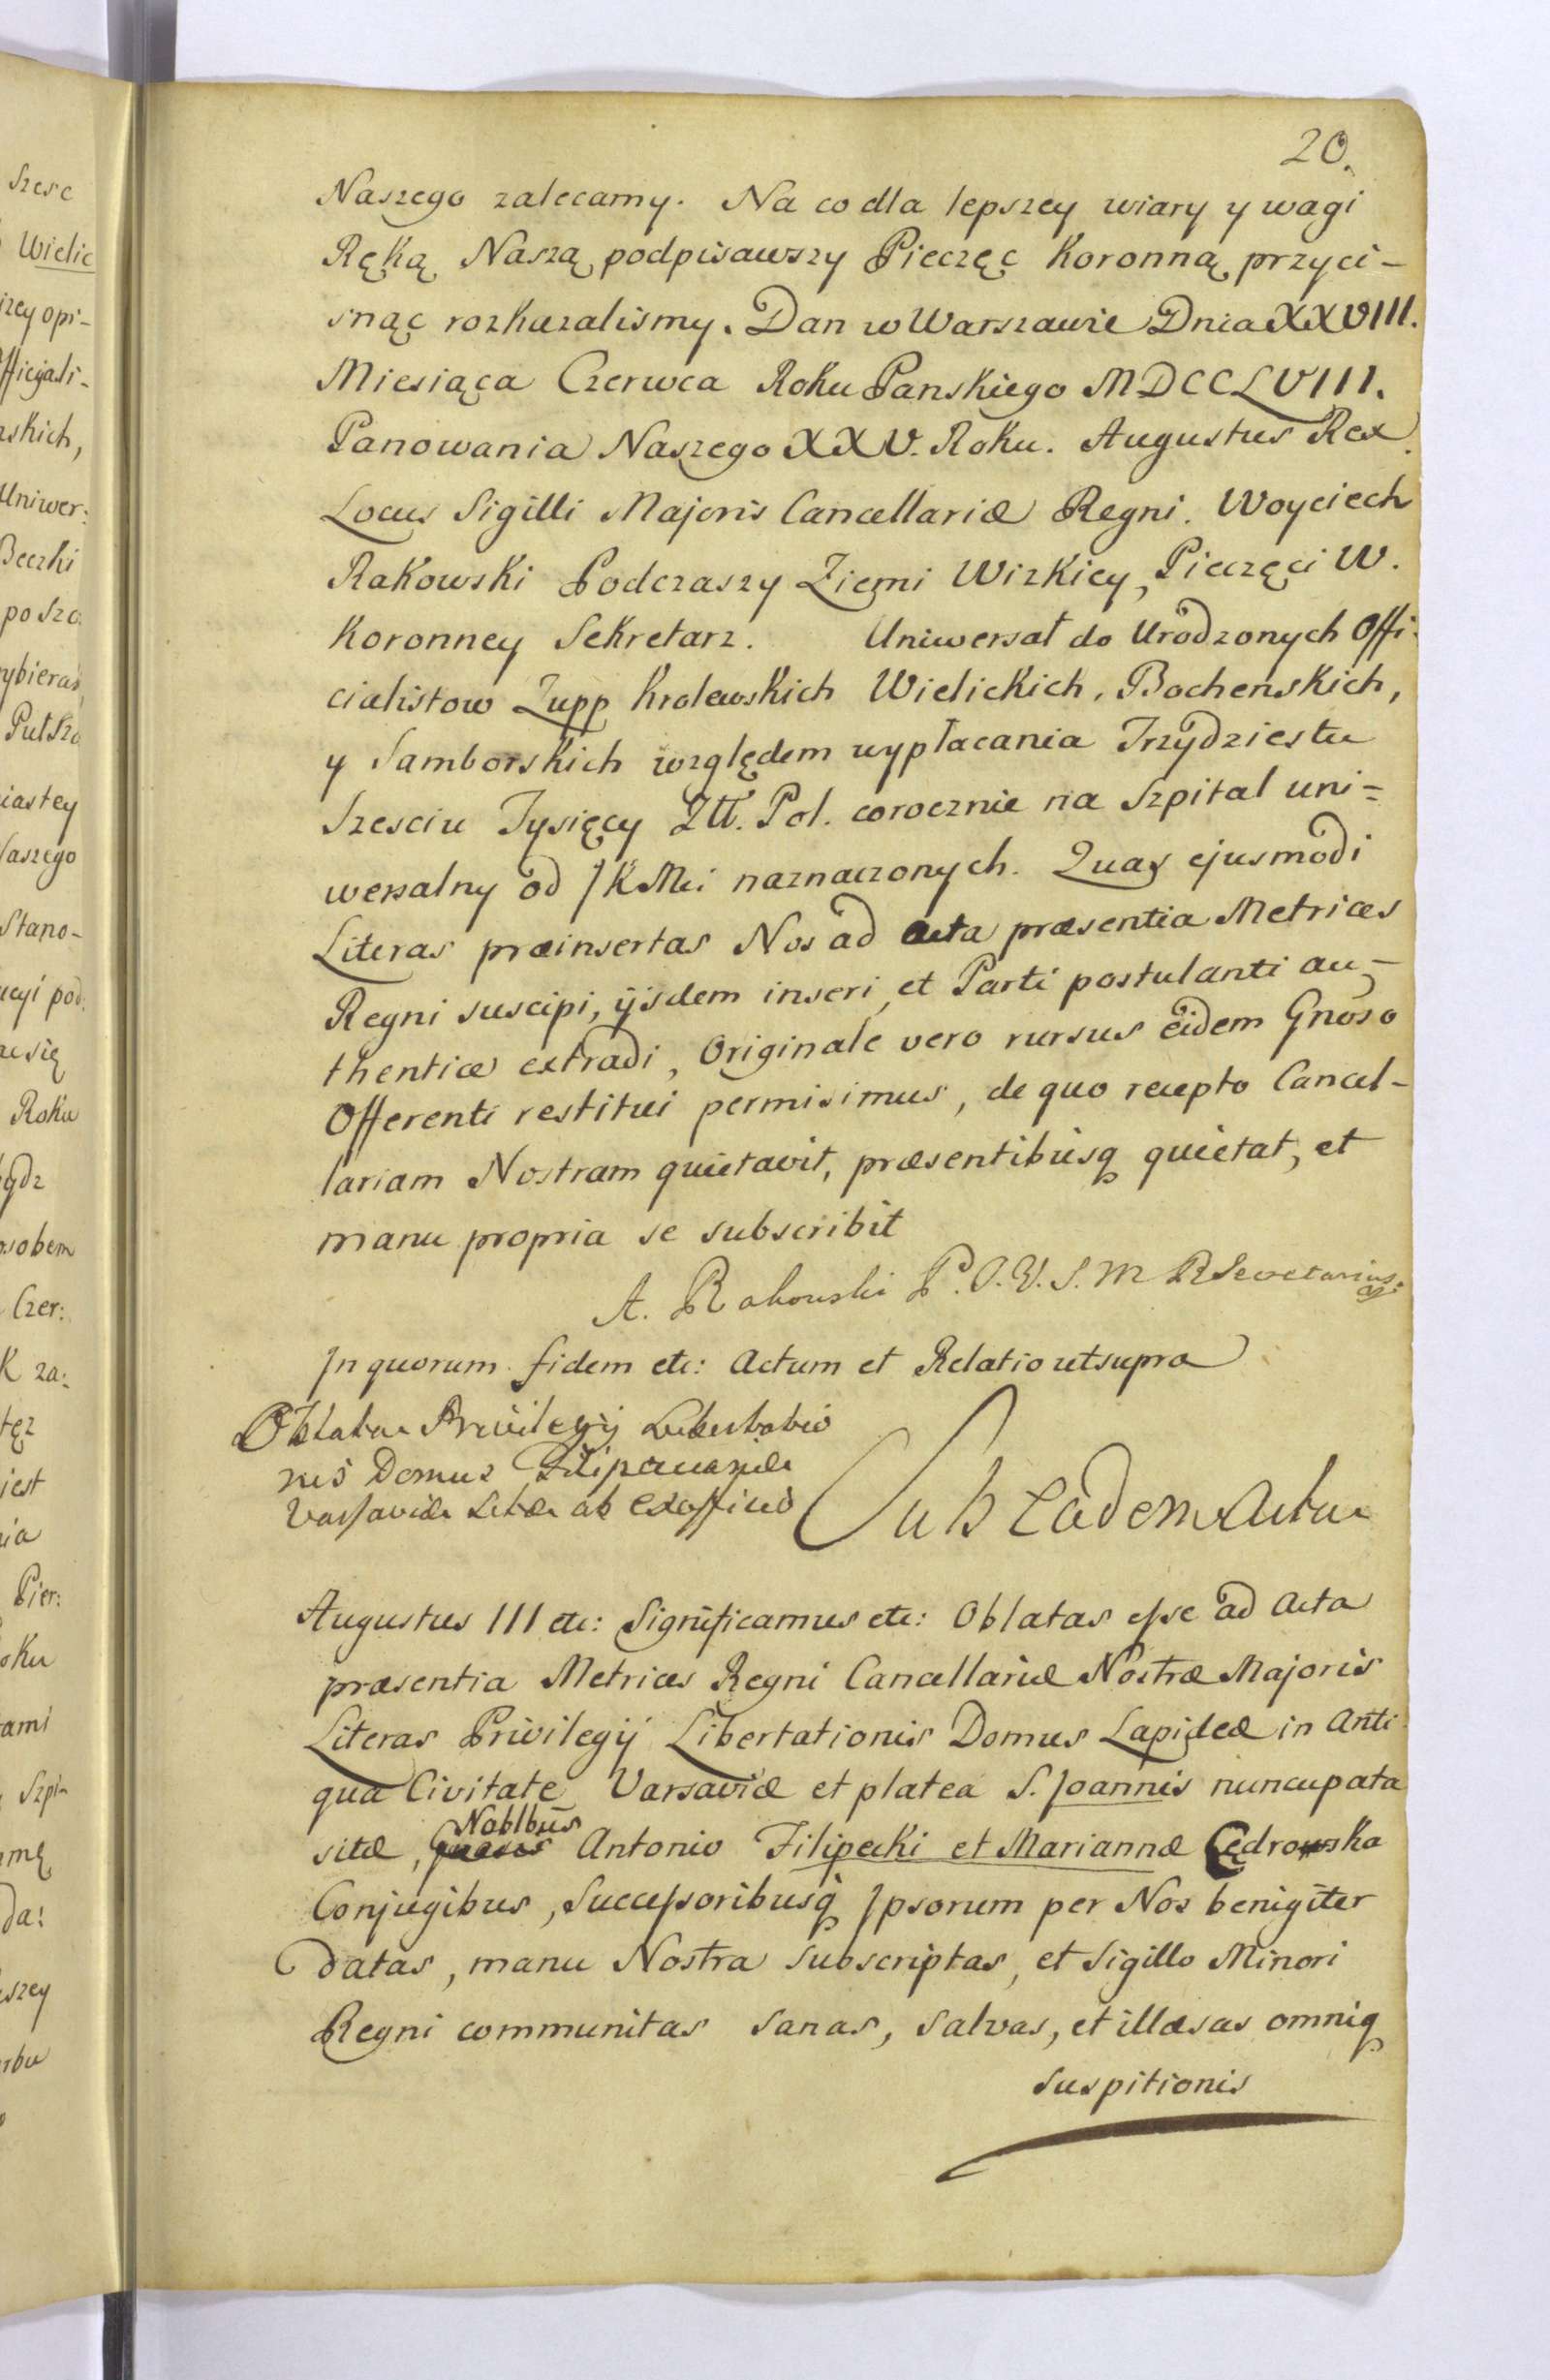 20.
Naszego zalecamy. Na co dla lepszey wiary y wagi
Ręką Naszą podpisawszy Pieczęc Koronną przyci-
snąc rozkazalismy. Dan w Warszawie Dnia XXVIII.
Miesiąca Czerwca Roku Panskiego MDCCLVIII.
Panowania Naszego XXV. Roku. Augustus Rex.
Locus Sigilli Majoris Cancellariæ Regni. Woyciech
Rakowski Podczaszy Ziemi Wizkiey, Pieczęci W.
Koronney Sekretarz. Uniwersał do Urodzonych Offi:
cialistow Zupp Krolewskich Wielickich, Bochenskich,
y Samborskich względem wypłacania Trzydziestu
Szesciu Tysięcy Złł. Pol. corocznie na Szpital uni=
wersalny od JKMci naznaczonych. Quas ejusmodi
Literas præinsertas Nos ad acta præsentia Metrices
Regni suscipi, ijsdem inseri, et Parti postulanti au-
thentice extradi, Originale vero rursus eidem Gnoso
Offerenti restitui permisimus, de quo recepto Cancel-
lariam Nostram quietavit, præsentibusq quietat, et
manu propria se subscribit
A. Rakowski P. O. V. S. M R Secretarius.
In quorum fidem etc: Actum et Relatio ut supra
Oblata Privilegij Libertatio
nis Domus Filipecciana
Varsaviæ sitæ ab exofficio
Sub eadem Actu
Augustus III etc: Significamus etc: Oblatas esse ad Acta
præsentia Metrices Regni Cancellariæ Nostræ Majoris
Literas Privilegij Libertationis Domus Lapideæ in Anti
qua Civitate Varsaviæ et platea S. Joannis nuncupata
sitæ, Noblbus Antonio Filipecki et Mariannæ Cędrowska
Conjugibus, Successoribusq Ipsorum per Nos benigiter
datas, manu Nostra subscriptas, et Sigillo Minori
Regni communitas sanas, salvas, et illæsas omniq
suspitionis
Szesc
Wielic
izey opi-
fficjali-
nskich,
Uniwer:
Beczki
po Szo
ybierad
Putszo
iastey
Naszego
Stano-
ucyi pod:
ze się
Roku
bydz
osobem
Czer:
K za:
tęz
iest
nia
Pier:
oku
ami
Szpi-
mę
da:
szey
rbu